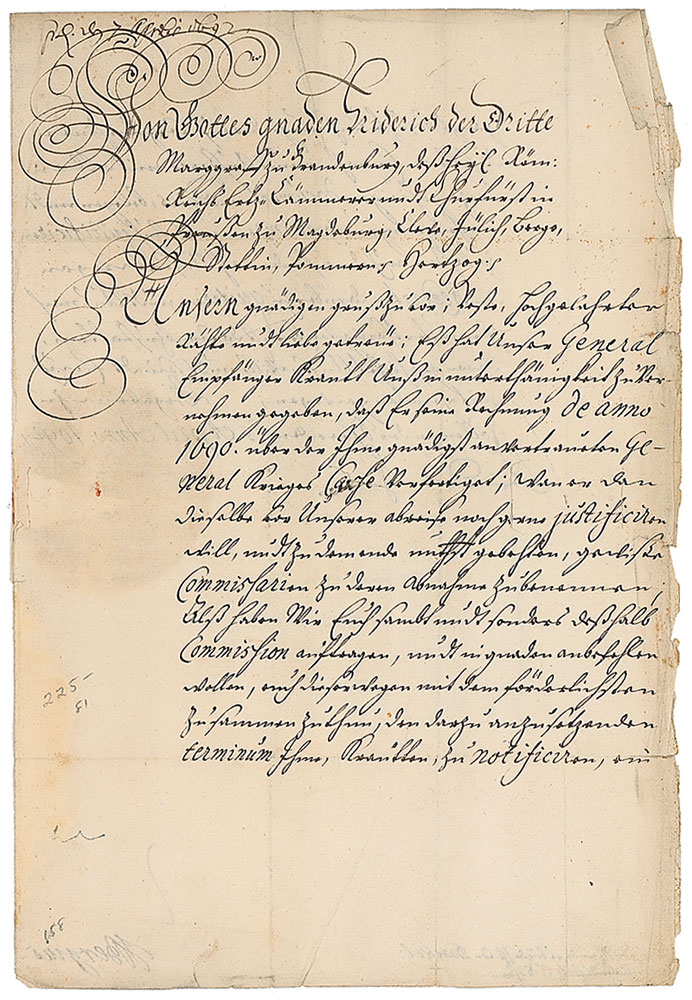 d. 7 Aprilis 1692
Von Gottes gnaden Friderich der Dritte
Marggraf zu Brandenburg, deß Heyl. Röm:
Reichs Ertz-Cämmerer undt Churfürst in
Preußen zu Magdeburg, Cleve, Jülich, Berge,
Stettin, Pommern Hertzog
Unsern gnädigen gruß zuvor; Veste, Hochgelahrter
Räthe undt liebe getreue; Eß hat Unser General
Empfänger Krautt Unß in unterthänigkeit zu ver-
nehmen gegeben, daß Er seine Rechnung de anno
1690. über der Ihme gnädigst anvertraueten Ge-
neral Krieges Casse verfertiget; Wan er dan
dieselbe vor Unserer abreise noch gerne justificiren
will, undt zu dem ende gebehten, gewisse
Commissarien zu deren Abnahme zubenennen;
Alß haben Wir Euch sambt undt sonders deßhalb
Commission auftragen, undt in gnaden anbefehlen
wollen, euch dieserwegen mit dem förderlichsten
zusammen zuthun, den darzu anzusetzenden
terminum Ihme, Krautten, zu notificiren, ein
225
81
158